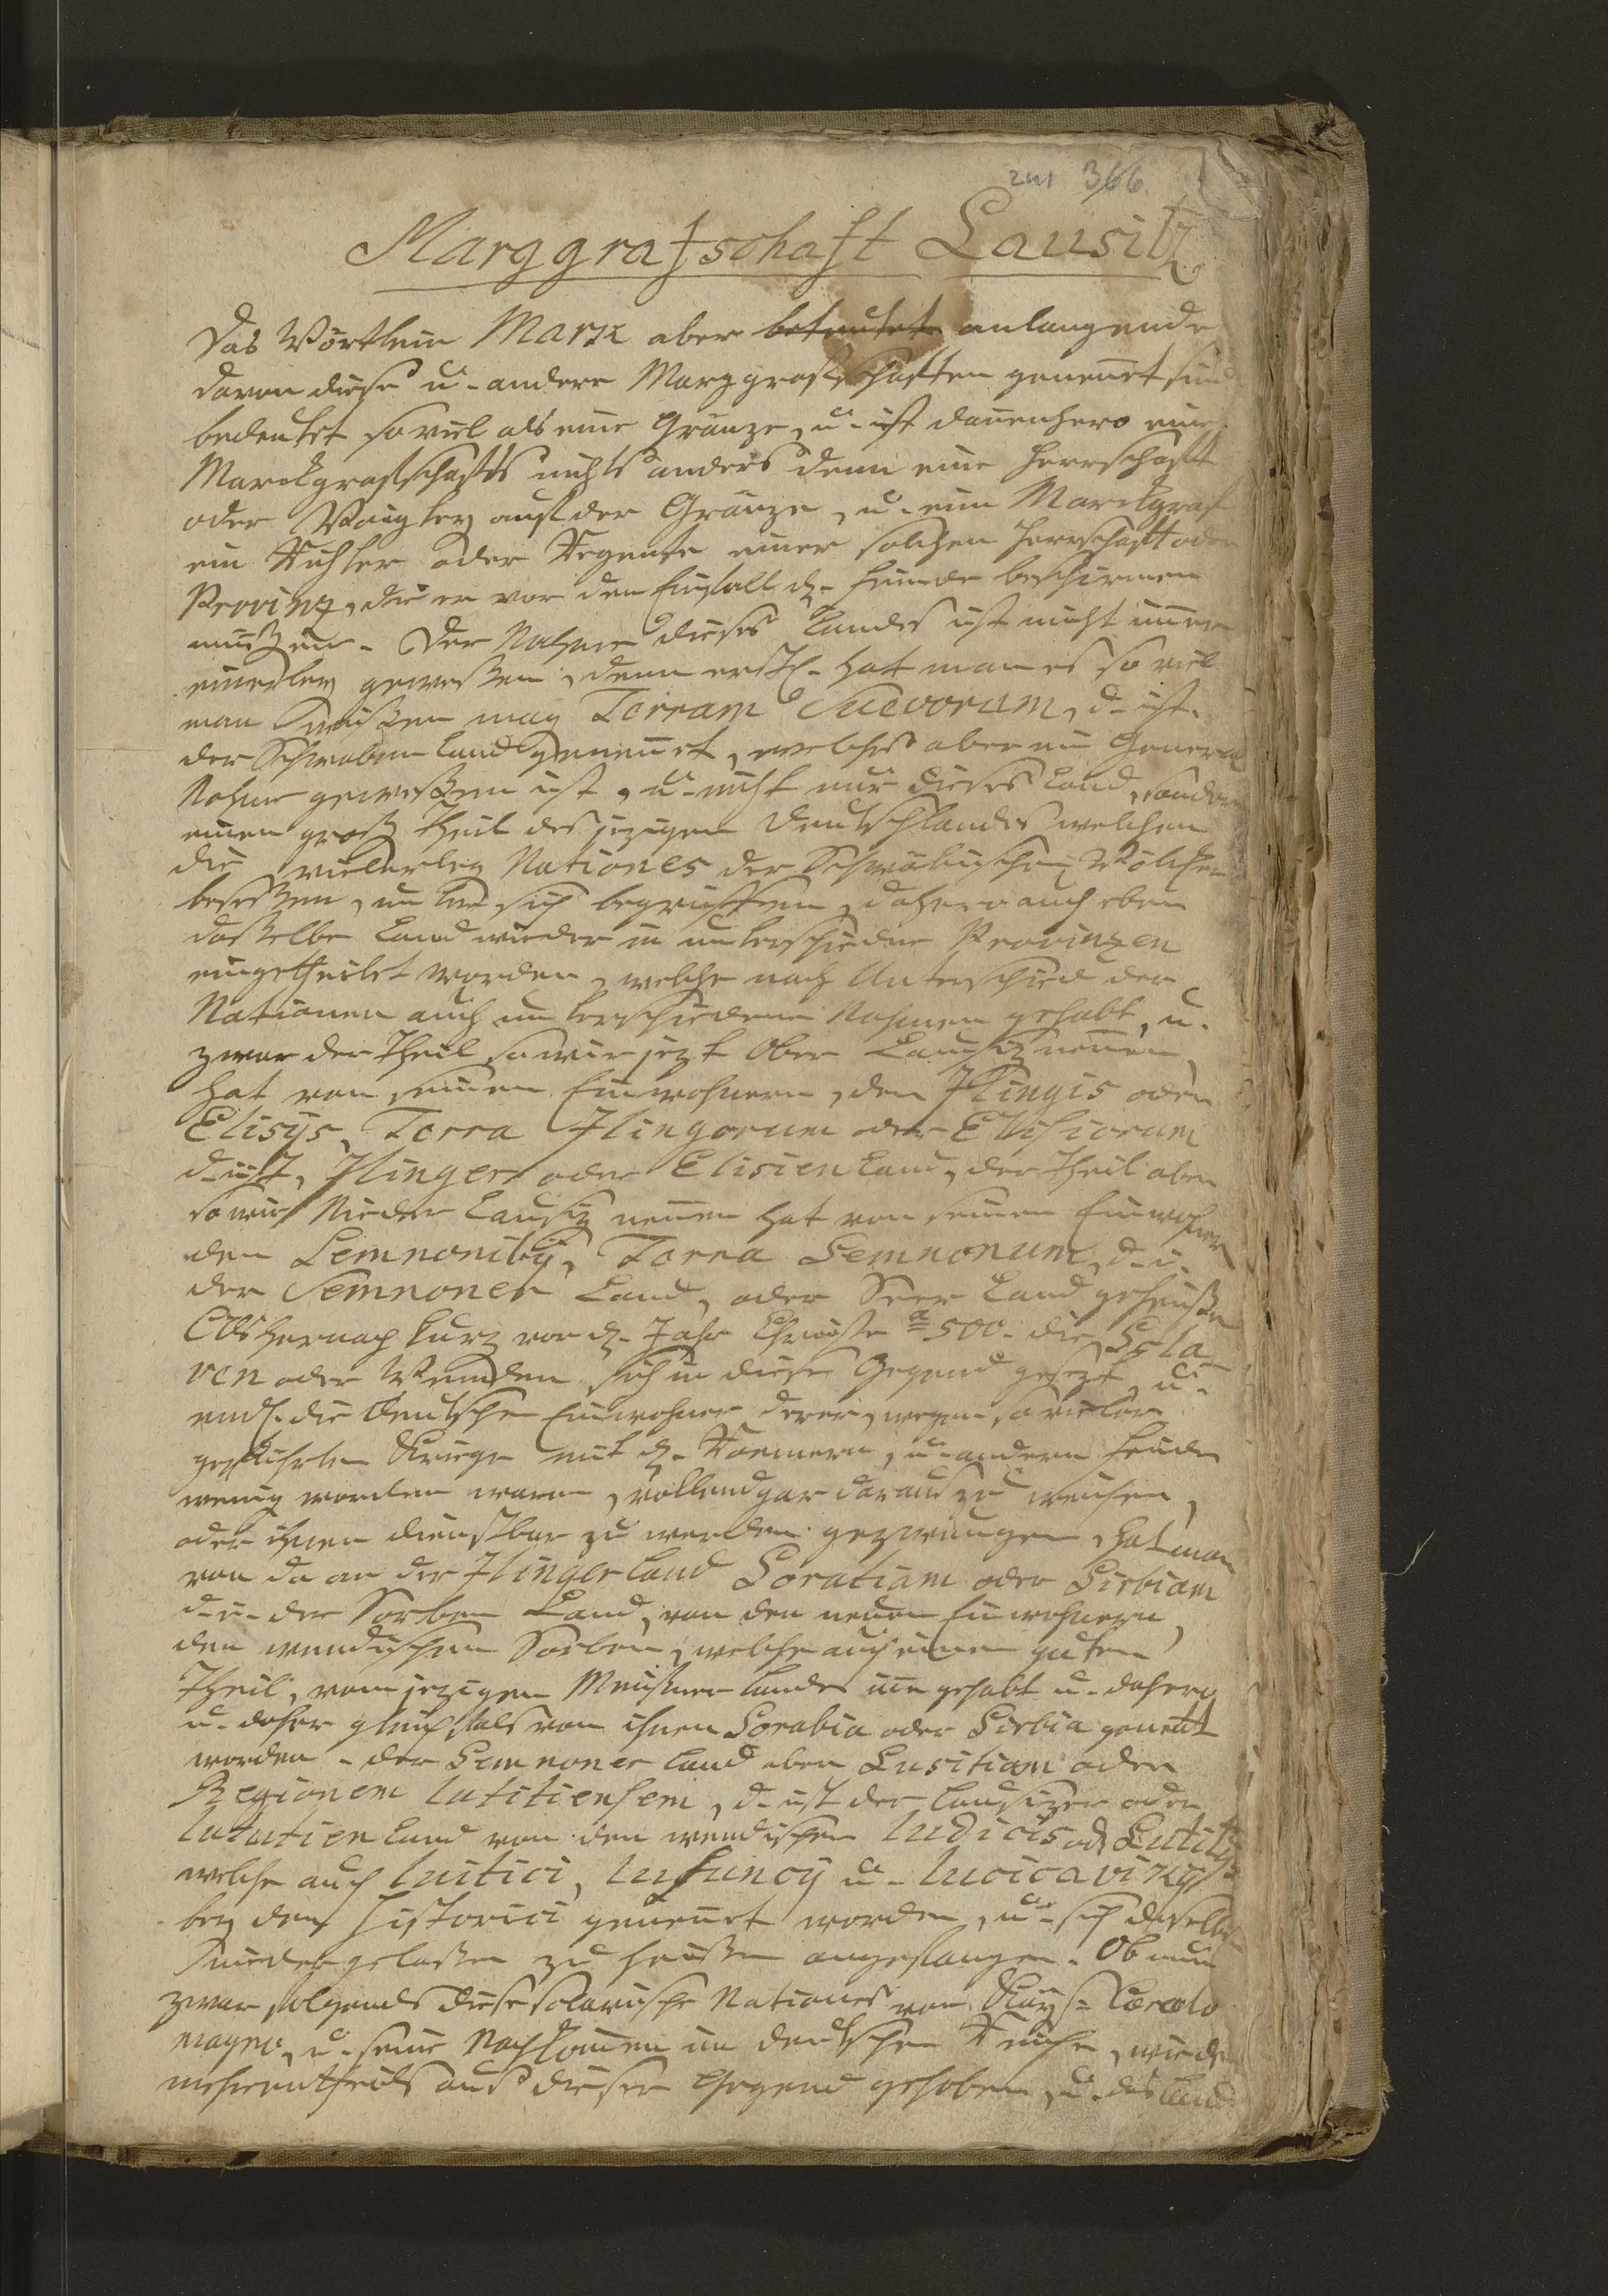 zu 366.
Marggrafschaft Lausitz.
Das Wörtlein Mark aber beteutete anlangende
davon diese u. andere Marggraffschafften genennet sind
bedeutet so viel als eine Gränze, u. ist dannenhero eine
Marckgraffschafft nichts anders denn eine Herrschafft
oder Voigtey auf der Gränze, u. ein Marckgraf
ein Richter oder Regente einer solchen Herrschafft oder
Provinz, die er vor dem Einfall d. Feinde beschirmen
müßen. Der Nahme dieses Landes ist nicht immer
einerley geweßen, denn erstl. hat man es so viel
man wißen mag Terram Suevorum, d. ist.
der Schwaben Land genennet, welches aber ein General
Nahme geweßen ist, u. nicht nur dieses Land, sondern
einen groß Theil des jezigen Deutschlandes welchen
die vielerley Nationes der Schwäbischen Völcker
beseßen, unter sich begriffen, dahero auch eben
daßelbe Land wieder in unterschiedne Provinzen
eingetheilet worden, welche nach Unterschied der
Nationen auch unterschiedene Nahmen gehabt, u.
zwar der Theil so wir jezt Ober Lausiz nennen,
hat von seinen Einwohnern, den Ilingis oder
Elisijs, Terra Ilingorum oder Elisiorum
d. ist, Ilinger oder Elisien Land, der Theil aber
so wir Nieder Lausiz nennen hat von seinen Einwohnern
den Semnonibg, Terra Semnonum, d. i.
der Semnoner Land, oder Seer Land geheißen
Als hernach kurz vor d. Jahr Christi a 500. die Scla
ven oder Wenden sich in diese Gegend gesezt, u.
endl. die Deutschen Einwohner derer, wegen so vieler
geführten Kriege mit d. Roemern, u. andern Feinden
wenig worden waren, vollend gar daraus zu weichen,
oder ihnen dienstbar zu werden gezwungen, hat man
von da an der Ilinger Land Soratiam oder Sirbiam
d. i. der Sorben Land, von den neuen Einwohnern,
den wendischen Sorben, welche auch einen guten
Theil, vom jezigen Meißner Lande inne gehabt u. dahero
u. daher gleichfals von ihnen Sorabia oder Sirbia genent
worden. der Semnoner Land aber Lusitiam oder
Regionem lutitiensem, d. ist der Lausizer oder
lututien Land von den wendischen ludicis od. Lutitijs
welche auch luitici, lusuncij u. lucicavizij
bey den Historici genennet worden, u. sich daselbst
niedergelaßen zu heißen angefangen. Ob nun
zwar folgends diese sclavische Nationes von Kays. Carolo
magno, u. seine Nachkommen im deutschen Reiche, wieder
mehrentheils aus dieser Gegend gehoben, u. das Land